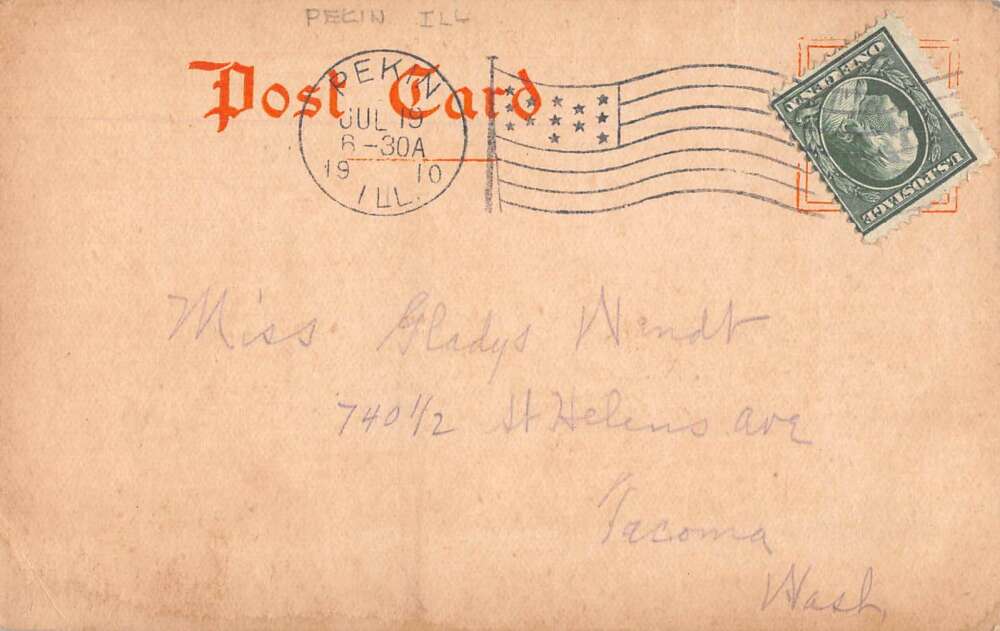 PEKIN ILL
Post Card
PEKIN
JUL 19
6-30A
19 10
ILL.
ONE CENT
U.S. POSTAGE
Miss Gladys Wendt
740 1/2 St Helens ave
Tacoma
Wash